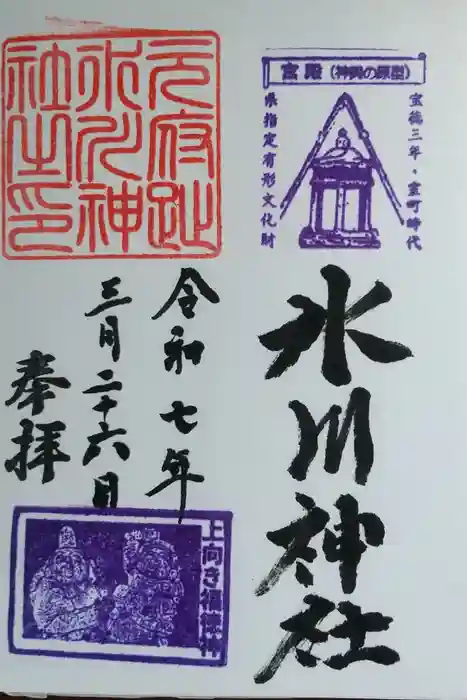 宮殿（神輿の原型）
宝徳三年・室町時代
県指定有形文化財
氷川神社
元府趾
氷川神
社之印
令和七年
三月二十六日
奉拝
上向き狛